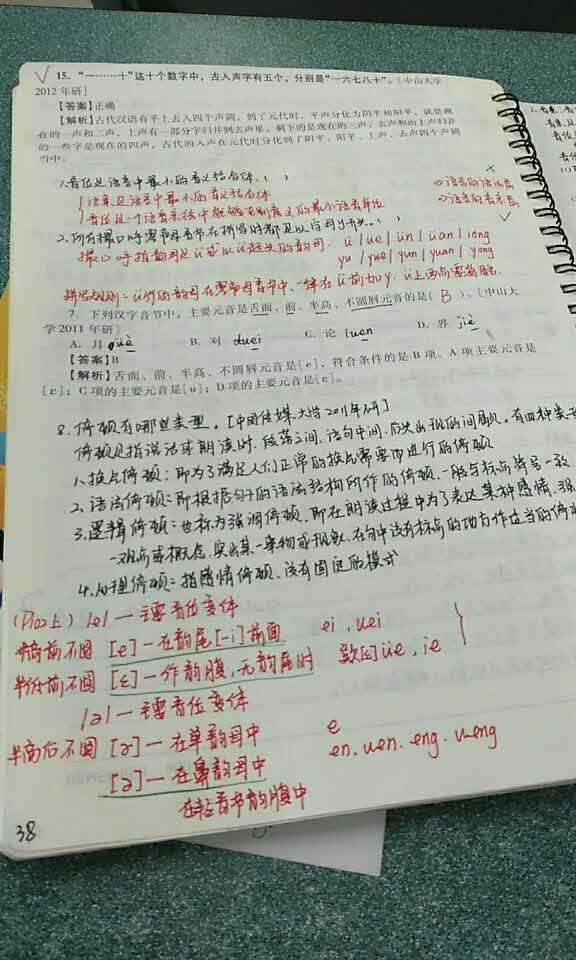 √ 15. “一……十”这十个数字中，古入声字有五个，分别是“一六七八十”。[中山大学
2012 年研]
【答案】正确
【解析】古代汉语有平上去入四个声调，到了元代时，平声分化为阴平和阳平，就是现
在的一声和二声，上声有一部分字归并到去声里，剩下的是现在的三声，去声和由上声归并
的一些字是现在的四声。古代的入声在元代时分化到了阴平、阳平、上声、去声四个声调
当中。
1.音位是语音中最小的音义结合体。( )
语素是语言中最小的音义结合体
音位是一个语音系统中能够区别意义的最小语音单位
2.所有撮口呼零韵母音节在拼写时都是以 开头。( )
撮口呼指韵母是ü或以ü起头的韵母. ü / üe / ün / üan / iong
yu / yue / yun / yuan / yong
拼写规则：ü行的韵母在零声母音节中，一律在ü前加y，ü上两点要省略.
7. 下列汉字音节中，主要元音是舌面、前、半高、不圆唇元音的是( B )。[中山大
学 2011 年研]
A. 月 üè B. 对 duei C. 论 luen D. 界 jiè
【答案】B
【解析】舌面、前、半高、不圆唇元音是[e]，符合条件的是 B 项。A 项主要元音是
[ε]；C 项的主要元音是[ə]；D 项的主要元音是[ε]。
8. 停顿有哪些类型。[中国传媒大学2011年研]
停顿是指说话或朗读时，段落之间，语句中间，后头出现的间歇，有四种类型
1.换气停顿：即为了满足人们正常的换气需要而进行的停顿
2.语法停顿：即根据句子的语法结构所作的停顿，一般与标点符号一致
3.逻辑停顿：也称为强调停顿，即在朗读过程中为了表达某种感情，强
一观点或概念，突出某一事物或现象，在句中没有标点的地方作适当的停顿
4.心理停顿：指感情停顿，没有固定的模式
(P102上) /e/ — 主要音位变体
半高前不圆 [e] — 在韵尾[-i]前面 ei , uei
半低前不圆 [ε] — 作韵腹，无韵尾时 üe , ie
/ə/ — 主要音位变体
半高后不圆 [ɤ] — 在单韵母中 e
[ə] — 在鼻韵母中 en. uen. eng. ueng
在轻音节韵腹中
38